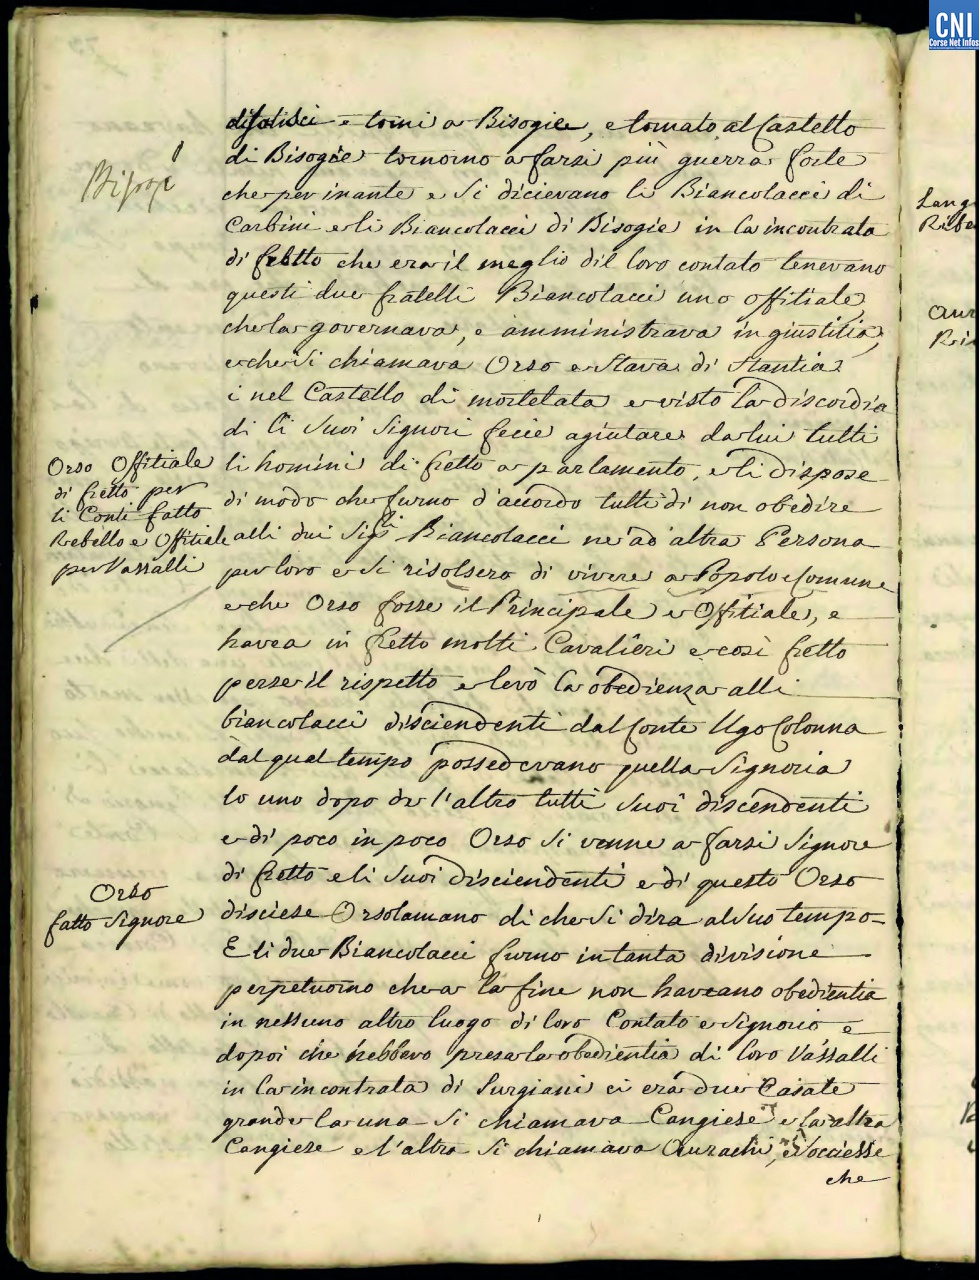 CNI
Corse Net Infos
e torni a Bisogie, e tornato al Castello
di Bisogie tornorno a farsi più guerra forte
che per inante e si dicievano li Biancolacci di
Carbini e li Biancolacci di Bisogie in la incontrata
di fretto che era il meglio dil loro contato tenevano
questi due fratelli Biancolacci uno offitiale
che la governava, e amministrava in giustitia,
e che si chiamava Orso e stava di stantia
i nel Castello di mortelata e visto la discordia
di li suoi signori fecie agiutare da lui tutti
li homini di fretto a parlamento, e li dispose
di modo che furno d'accordo tutti di non obedire
alli dui Sigri Biancolacci ne ad altra Persona
per loro e si risolsero di vivere a Popolo e Comune
e che Orso fosse il Principale e Offitiale, e
havea in fretto molti Cavalieri e così fretto
perse il rispetto e levò la obedienza alli
biancolacci disciendenti dal Conte Ugo Colonna
dal qual tempo possedevano quella Signoria
lo uno dopo de l'altro tutti suoi discendenti
e di poco in poco Orso si venne a farsi signore
di fretto e li suoi disciendenti e di questo Orso
disciese Orsolamano di che si dira al suo tempo
E li due Biancolacci furno in tanta divisione
perpetuorno che a la fine non haveano obedientia
in nessuno altro luogo di loro Contato e signorio e
dopoi che hebbero persa la obedientia di loro Vassalli
in la incontrata di Surgiani ci era due Casate
grande la una si chiamava Cangiese e la altra
Cangiese e l'altra si chiamava Aurachi,
che
Bisogè
Orso Offitiale
di fretto per
li Conti fatto
Rebello e Offitiale
per Vassalli
Orso
fatto signore